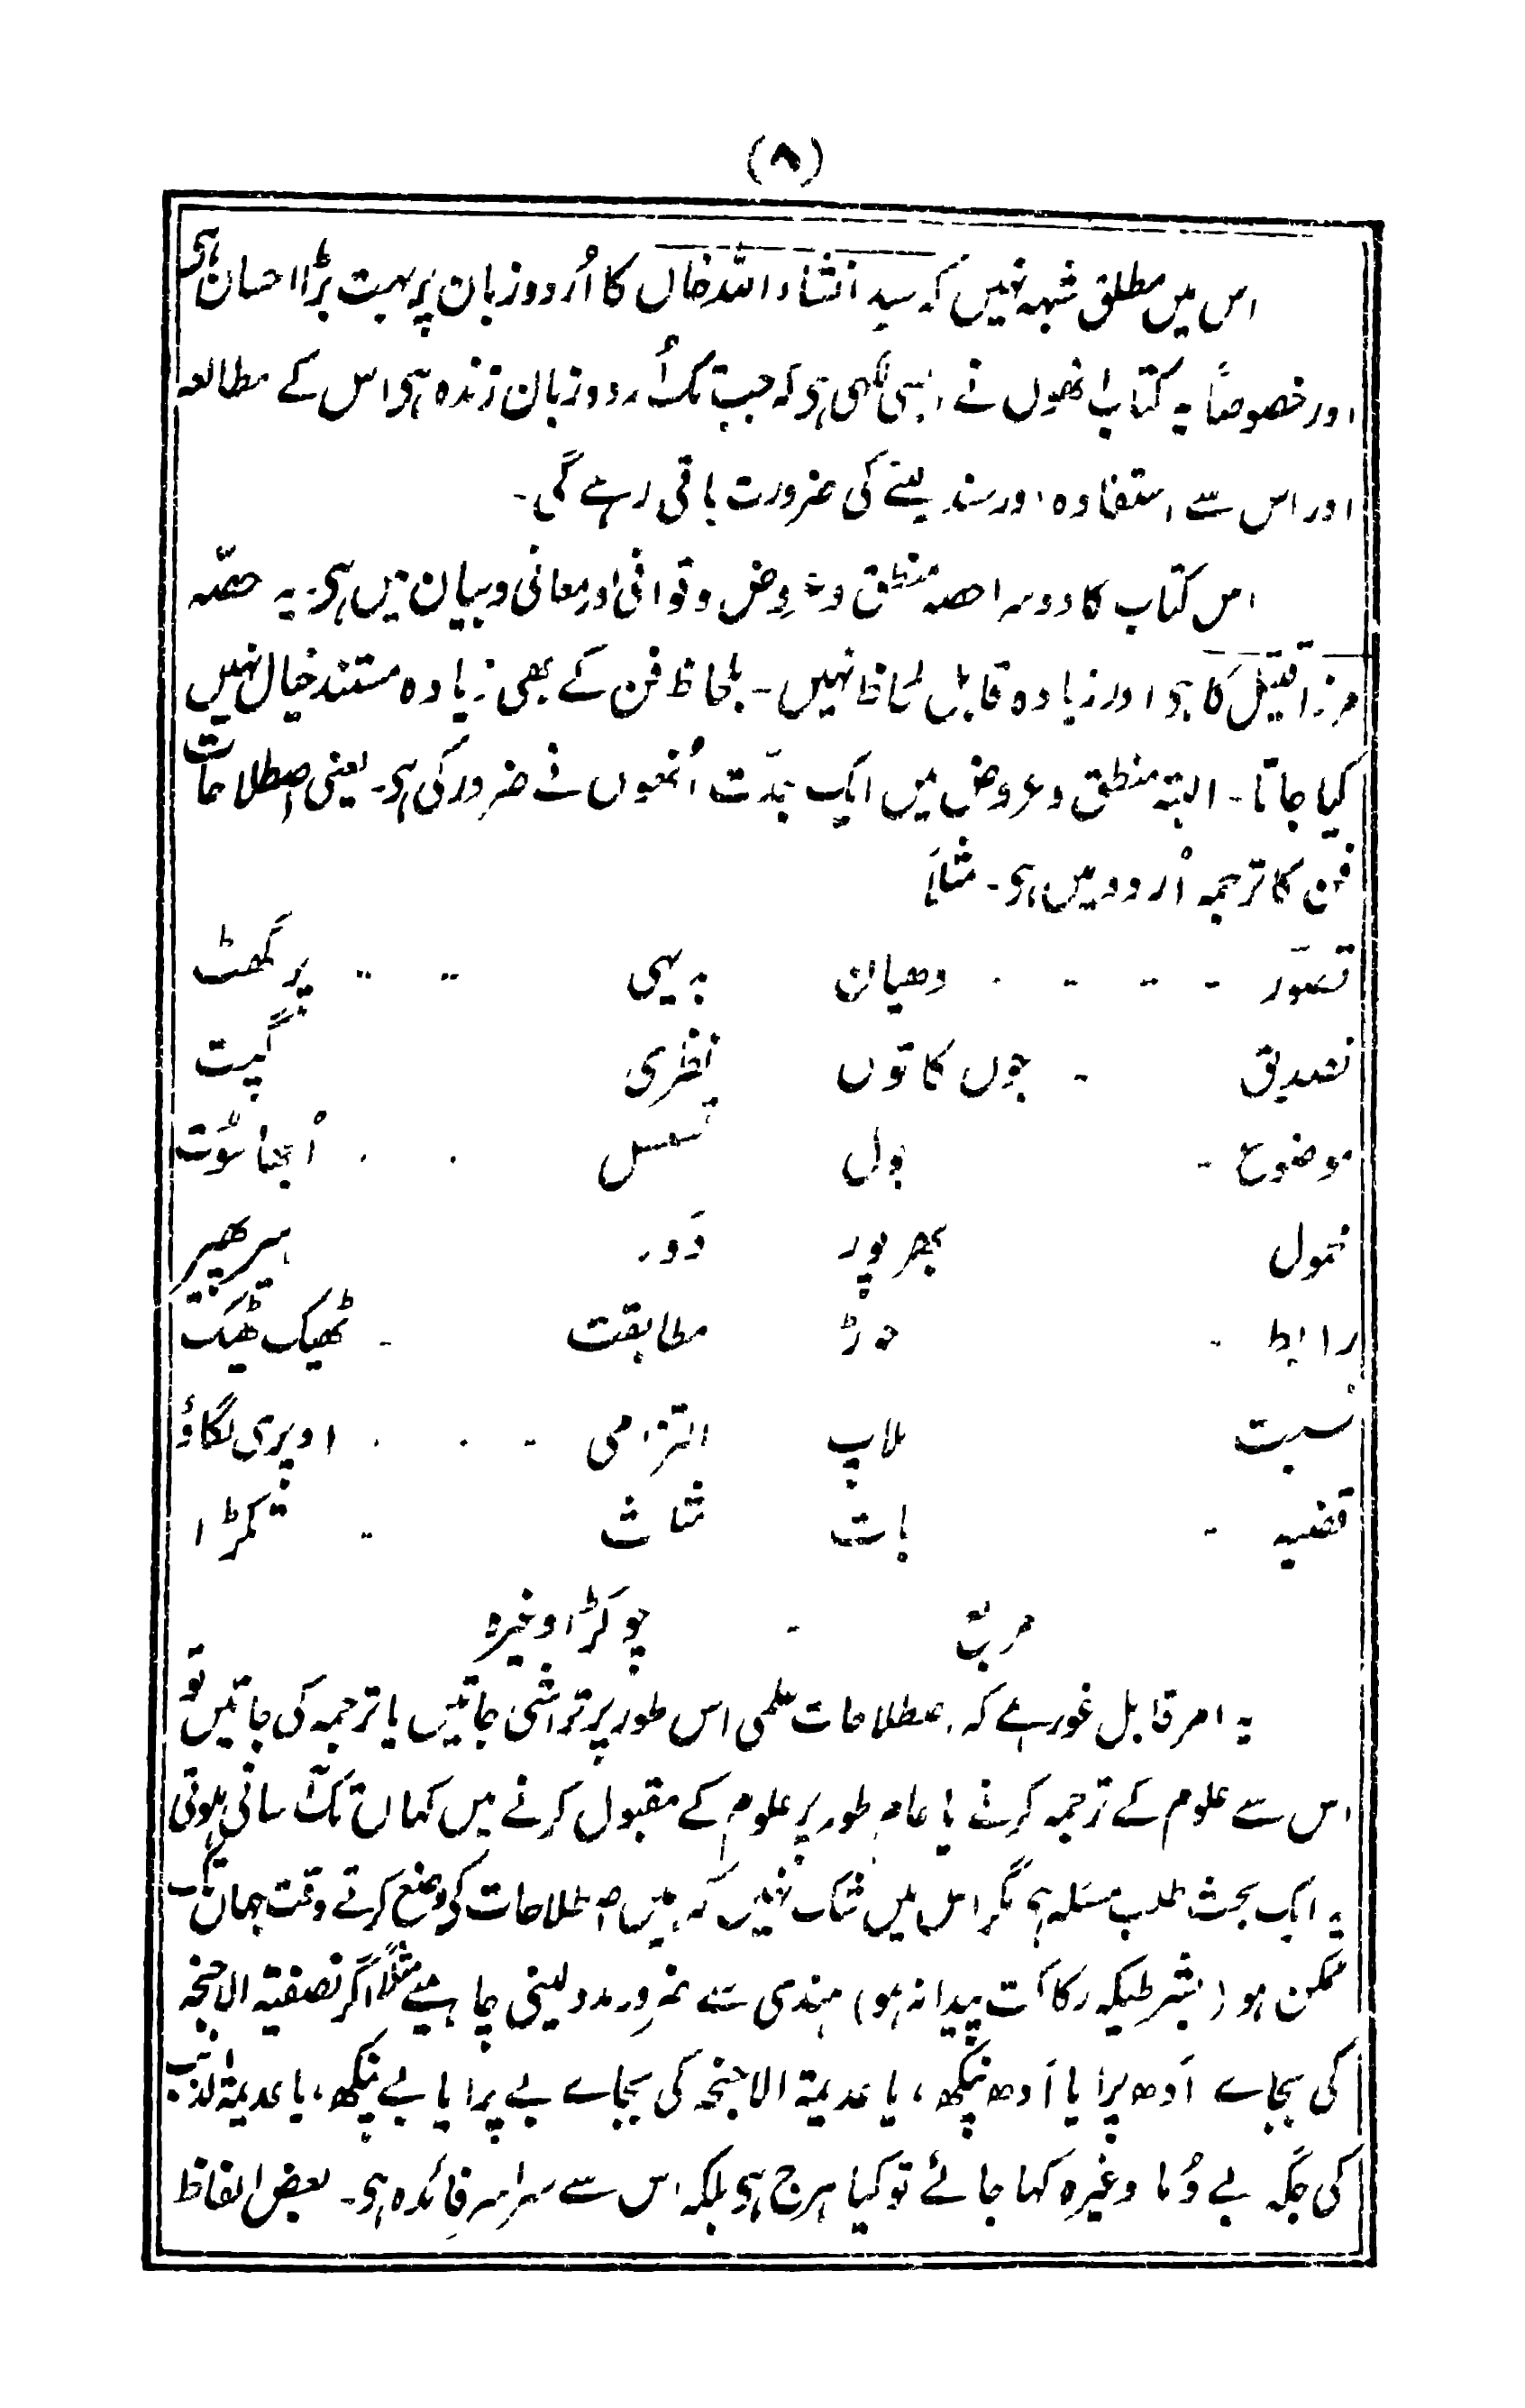 (۸)
اس میں مطلق شبہہ نہیں کہ سید انشاء اللہ خاں کا اُردو زبان پر بہت بڑا احسان ہی
اور خصوصاً یہ کتاب انھوں نے ایسی لکھی ہی کہ جب تک اُردو زبان زندہ ہی اس کے مطالعہ
اور اس سے استفادہ اور سند لینے کی ضرورت باقی رہے گی۔
اس کتاب کا دوسرا حصہ منطق و عروض و قوافی اور معانی و بیان میں ہی۔ یہ حصّہ
مرزا قتیل کا ہی اور زیادہ قابل لحاظ نہیں۔ بلحاظ فن کے بھی زیادہ مستند خیال نہیں
کیا جاتا۔ البتہ منطق و عروض میں ایک جدّت اُنھوں نے ضرور کی ہی۔ یعنی اصطلاحات
فن کا ترجمہ اُردو میں ہی۔ مثلاً
تصوّر - - - - دھیان بدیہی - - پرگھٹ
تصدیق - جوں کا توں نظری گپت
موضوع - بول تسلسل - - اُلجھا سُوت
محمول بھرپور دَور ہیر پھیر
رابط - جوڑ مطابقت - ٹھیک ٹھیک
نسبت ملاپ التزامی - - - اوپری لگاؤ
قضیہ - بات مثلث - تکڑا
مربع - چوکڑا وغیرہ
یہ امر قابل غور ہے کہ اصطلاحات علمی اس طور پر تراشی جائیں یا ترجمہ کی جائیں تو
اس سے علوم کے ترجمہ کرنے یا عام طور پر علوم کے مقبول کرنے میں کہاں تک آسانی ہوتی
یہ ایک بحث طلب مسئلہ ہی مگر اس میں شک نہیں کہ ہمیں اصطلاحات کی وضع کرتے وقت جہاں تک
ممکن ہو (بشرطیکہ رکاکت پیدا نہ ہو) ہندی سے ضرور مدد لینی چاہیے مثلاً اگر نصفیۃ الاجنحہ
کی بجاے اَدھ پرا یا اَدھ پنکھ، یا عدیمۃ الاجنحہ کی بجاے بے پرا یا بے پنکھ، یا عدیمۃ الذنب
کی جگہ بے دُما وغیرہ کہا جائے تو کیا ہرج ہی بلکہ اس سے سراسر فائدہ ہی۔ بعض الفاظ